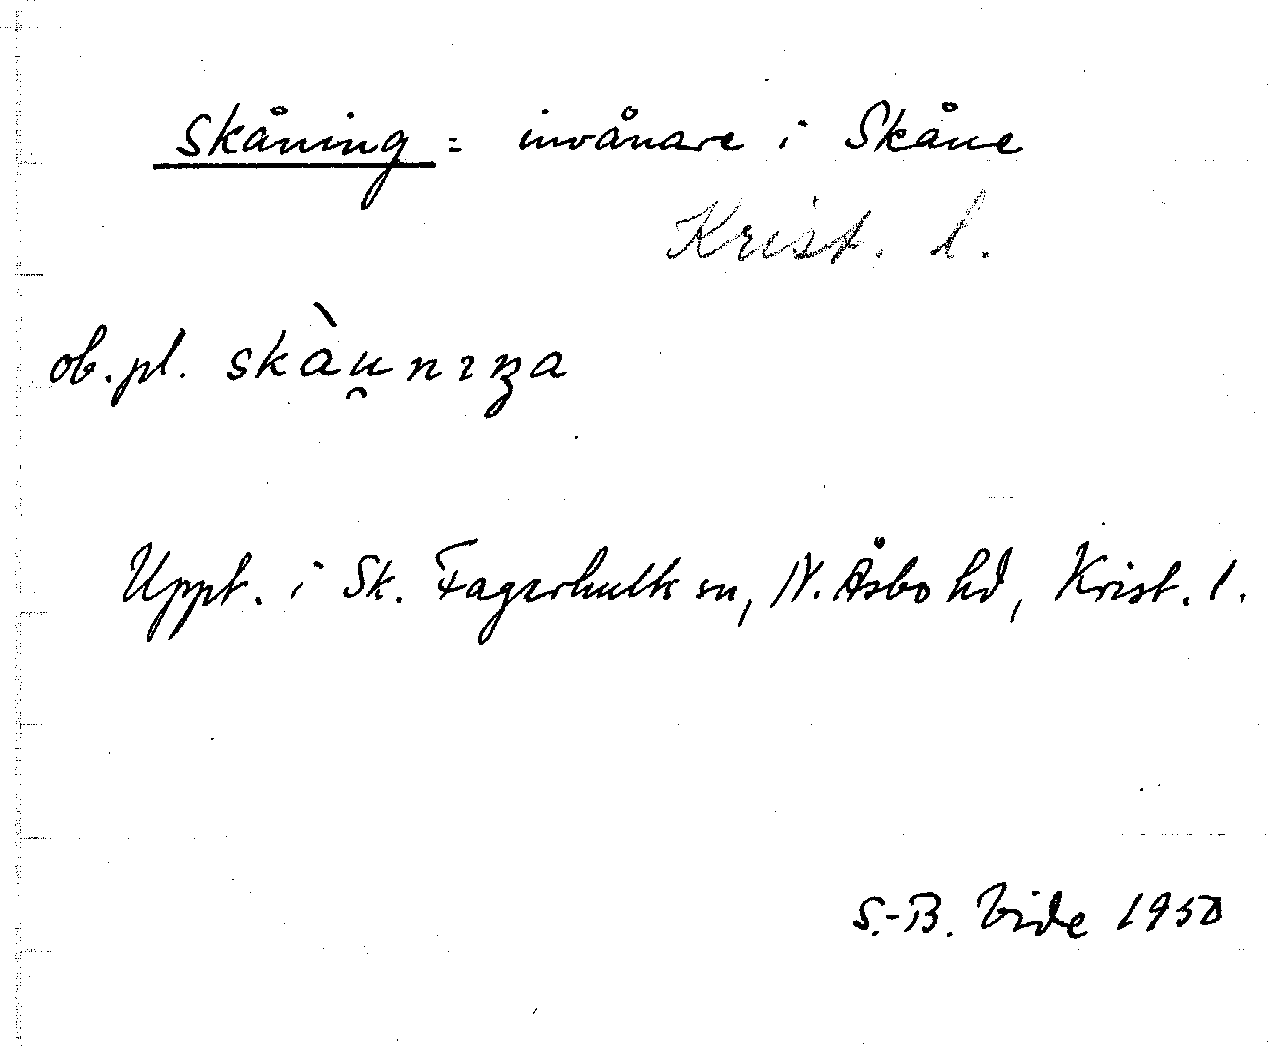 Skåning = invånare i Skåne
Krist. l.
ob.pl. skàu̯nıŋa
Uppt. i Sk. Fagerhult sn, N. Åsbo hd, Krist. l.
S.-B. Vide 1950